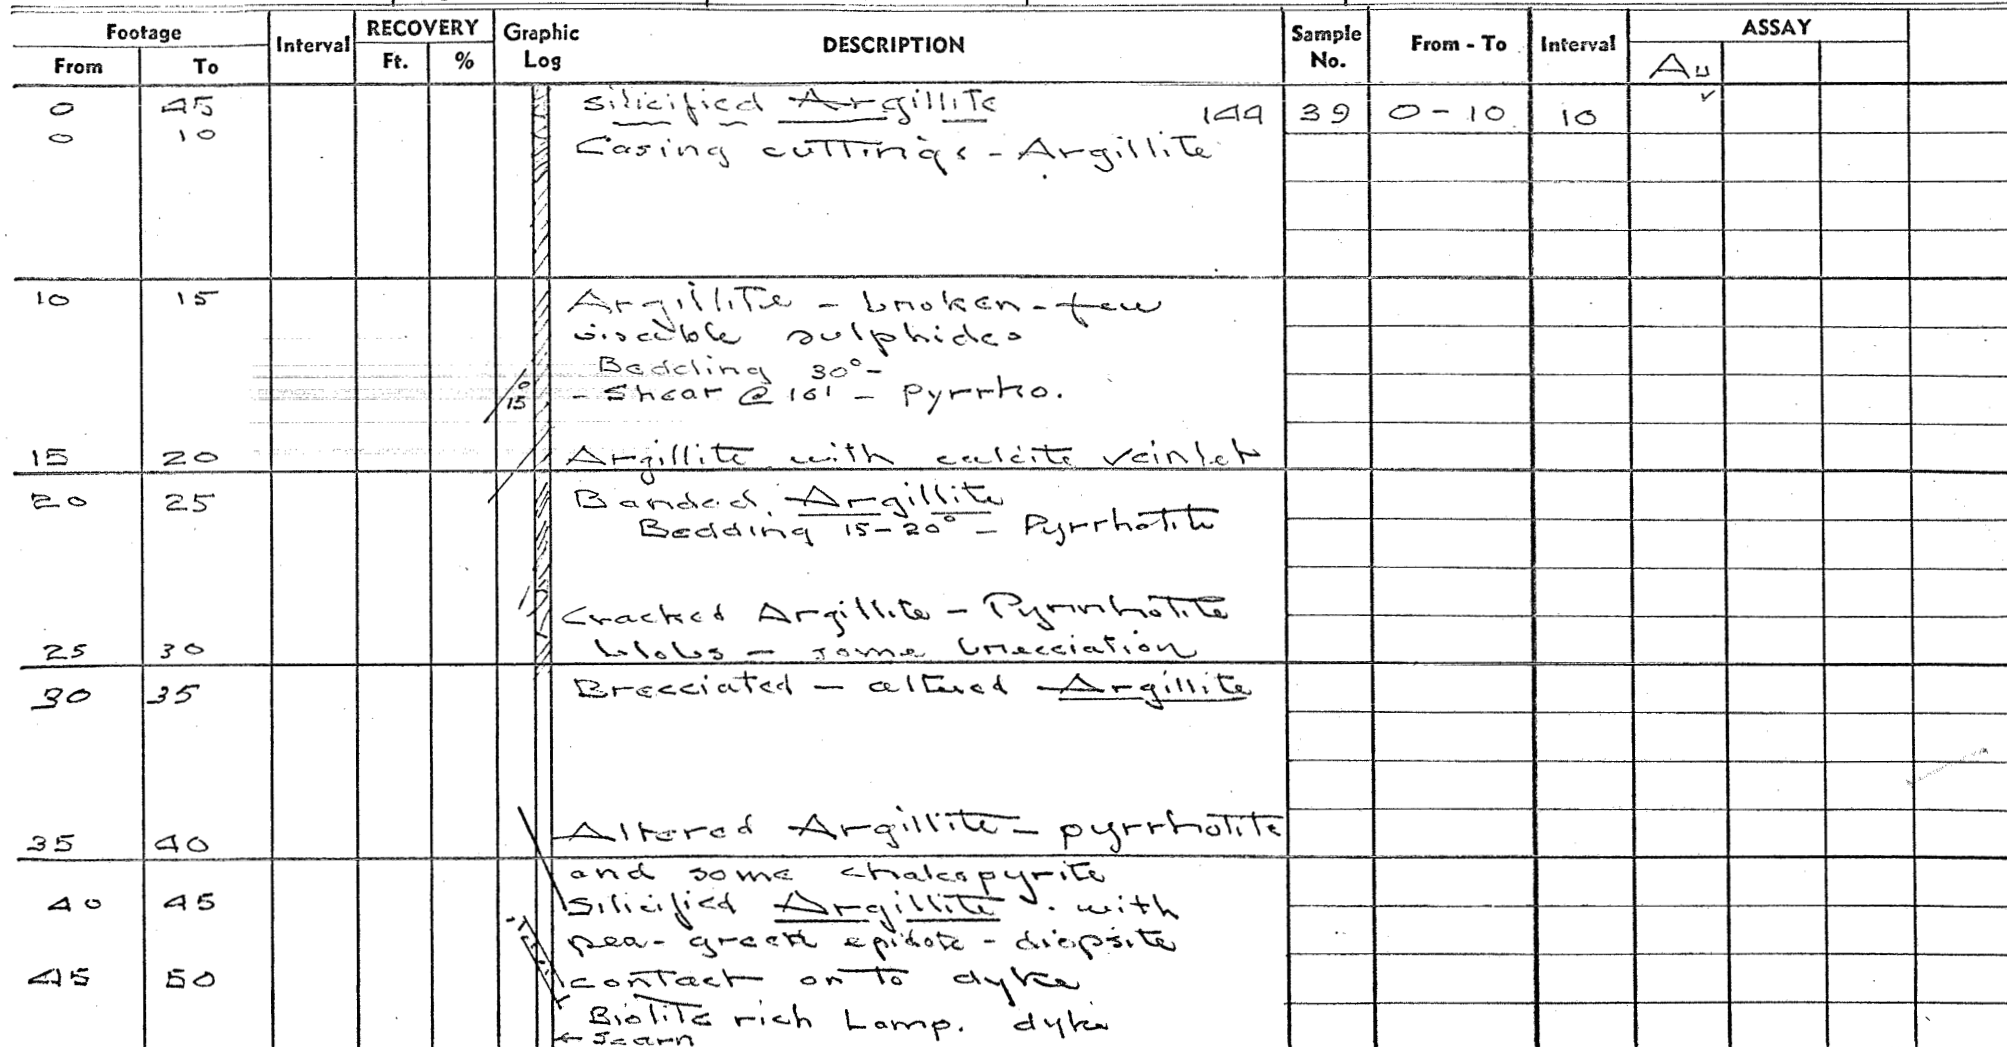 Footage Interval RECOVERY Graphic Log DESCRIPTION Sample No. From - To Interval ASSAY
From To Ft. % Au
0 45 silicified Argillite 144 39 0 - 10 10
0 10 Casing cuttings - Argillite
10 15 Argillite - broken - few
viseable sulphides
Bedding 30° -
15 - Shear @ 161 - pyrrho.
15 20 Argillite with calcite veinlet
20 25 Banded Argillite
Bedding 15-20° - Pyrrhotite
Cracked Argillite - Pyrrhotite
25 30 blobs - some brecciation
30 35 Brecciated - altered Argillite
35 40 Altered Argillite - pyrrhotite
and some chalcopyrite
40 45 Silicified Argillite. with
pea-green epidote - diopsite
45 50 contact on to dyke
Biolite rich Lamp. dyke
← Scarn